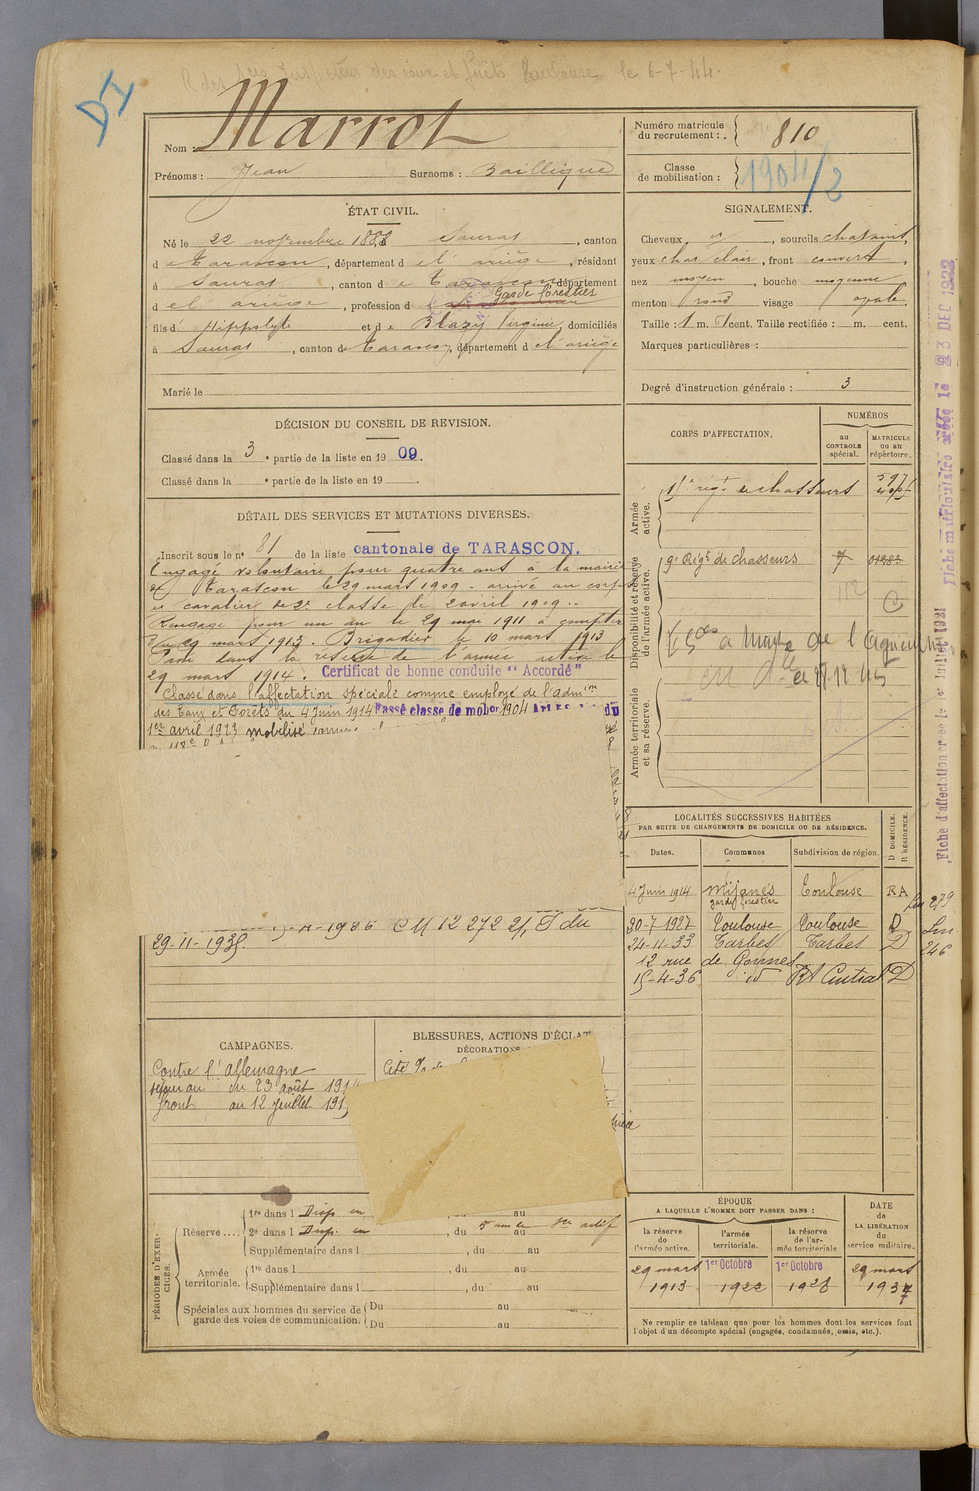 des eaux et forêts Toulouse le 6-7-44.
DI
Nom : Marrot
Prénoms : Jean Surnoms : Baillique
ÉTAT CIVIL.
Né le 22 novembre 1888 Saurat, canton
d e Tarascon, département d e l'ariège, résidant
à Saurat, canton d e Tarascon, département
d e l'ariège, profession d Garde forestier
fils d' Hippolyte et d e Blazy Virginie, domiciliés
à Saurat, canton de Tarascon, département d e l'ariège
Marié le
DÉCISION DU CONSEIL DE REVISION.
Classé dans la 3e partie de la liste en 1909.
Classé dans la e partie de la liste en 19
DÉTAIL DES SERVICES ET MUTATIONS DIVERSES.
Inscrit sous le n° 81 de la liste cantonale de TARASCON.
Engagé volontaire pour quatre ans à la mairie
de Tarascon le 29 mars 1909 - arrivé au corps
et cavalier de 2e classe le 2 avril 1909..
Rengagé pour un an le 29 mai 1911 à compter
du 29 mars 1913. Brigadier le 10 mars 1913
Passé dans la réserve de l'armée active le
29 mars 1914. Certificat de bonne conduite "Accordé"
Classé dans l'affectation spéciale comme employé de l'admion
des Eaux et Forêts du 4 Juin 1914 Passé classe de mobon 1904 du
1er avril 1923 mobilisé
1936 CM 12 272 2/, T du
29-11-1935.
CAMPAGNES.
Contre l'allemagne
séjour au du 23 août 1914
front au 12 Juillet 191
BLESSURES, ACTIONS D'ÉCLAT
DÉCORATIONS
Cité
PÉRIODES D'EXERCICES.
Réserve....
1re dans l Disp. en au
2e dans l Disp. en , du au
Supplémentaire dans l , du au
Armée territoriale.
1re dans l , du au
Supplémentaire dans l , du au
Spéciales aux hommes du service de garde des voies de communication.
Du au
Du au
Numéro matricule du recrutement : 810
Classe de mobilisation : 1904/2
SIGNALEMENT.
Cheveux et, sourcils chatains,
yeux chat clair, front couvert,
nez moyen, bouche moyenne
menton rond visage ovale.
Taille : 1 m. cent. Taille rectifiée : m. cent.
Marques particulières :
Degré d'instruction générale : 3
CORPS D'AFFECTATION.
NUMÉROS
au CONTROLE spécial.
MATRICULE ou au répertoire.
Armée active.
Régt de chasseurs 597
Disponibilité et réserve de l'armée active.
9e Régt de chasseurs 7 01283
112
de l'Agriculture
Armée territoriale et sa réserve.
LOCALITÉS SUCCESSIVES HABITÉES
PAR SUITE DE CHANGEMENTS DE DOMICILE OU DE RÉSIDENCE.
Dates. Communes Subdivision de région. D DOMICILE. R RÉSIDENCE.
4 Juin 1914 Mijanès Toulouse RA
garde forestier
30-7-1927 Toulouse Toulouse D
24-11-33 Tarbes Tarbes D
12 rue de Gonnes
15-4-36 id Rt Central D
279
246
ÉPOQUE
A LAQUELLE L'HOMME DOIT PASSER DANS :
la réserve de l'armée active.
l'armée territoriale.
la réserve de l'armée territoriale
DATE de LA LIBÉRATION du service militaire.
29 mars 1913
1er Octobre 1922
1er Octobre 1928
29 mars 1937
Ne remplir ce tableau que pour les hommes dont les services font
l'objet d'un décompte spécial (engagés, condamnés, omis, etc.).
Fiche d'affectation créée le Juillet 1921
Fiche matriculaire créée le 23 DEC 1922